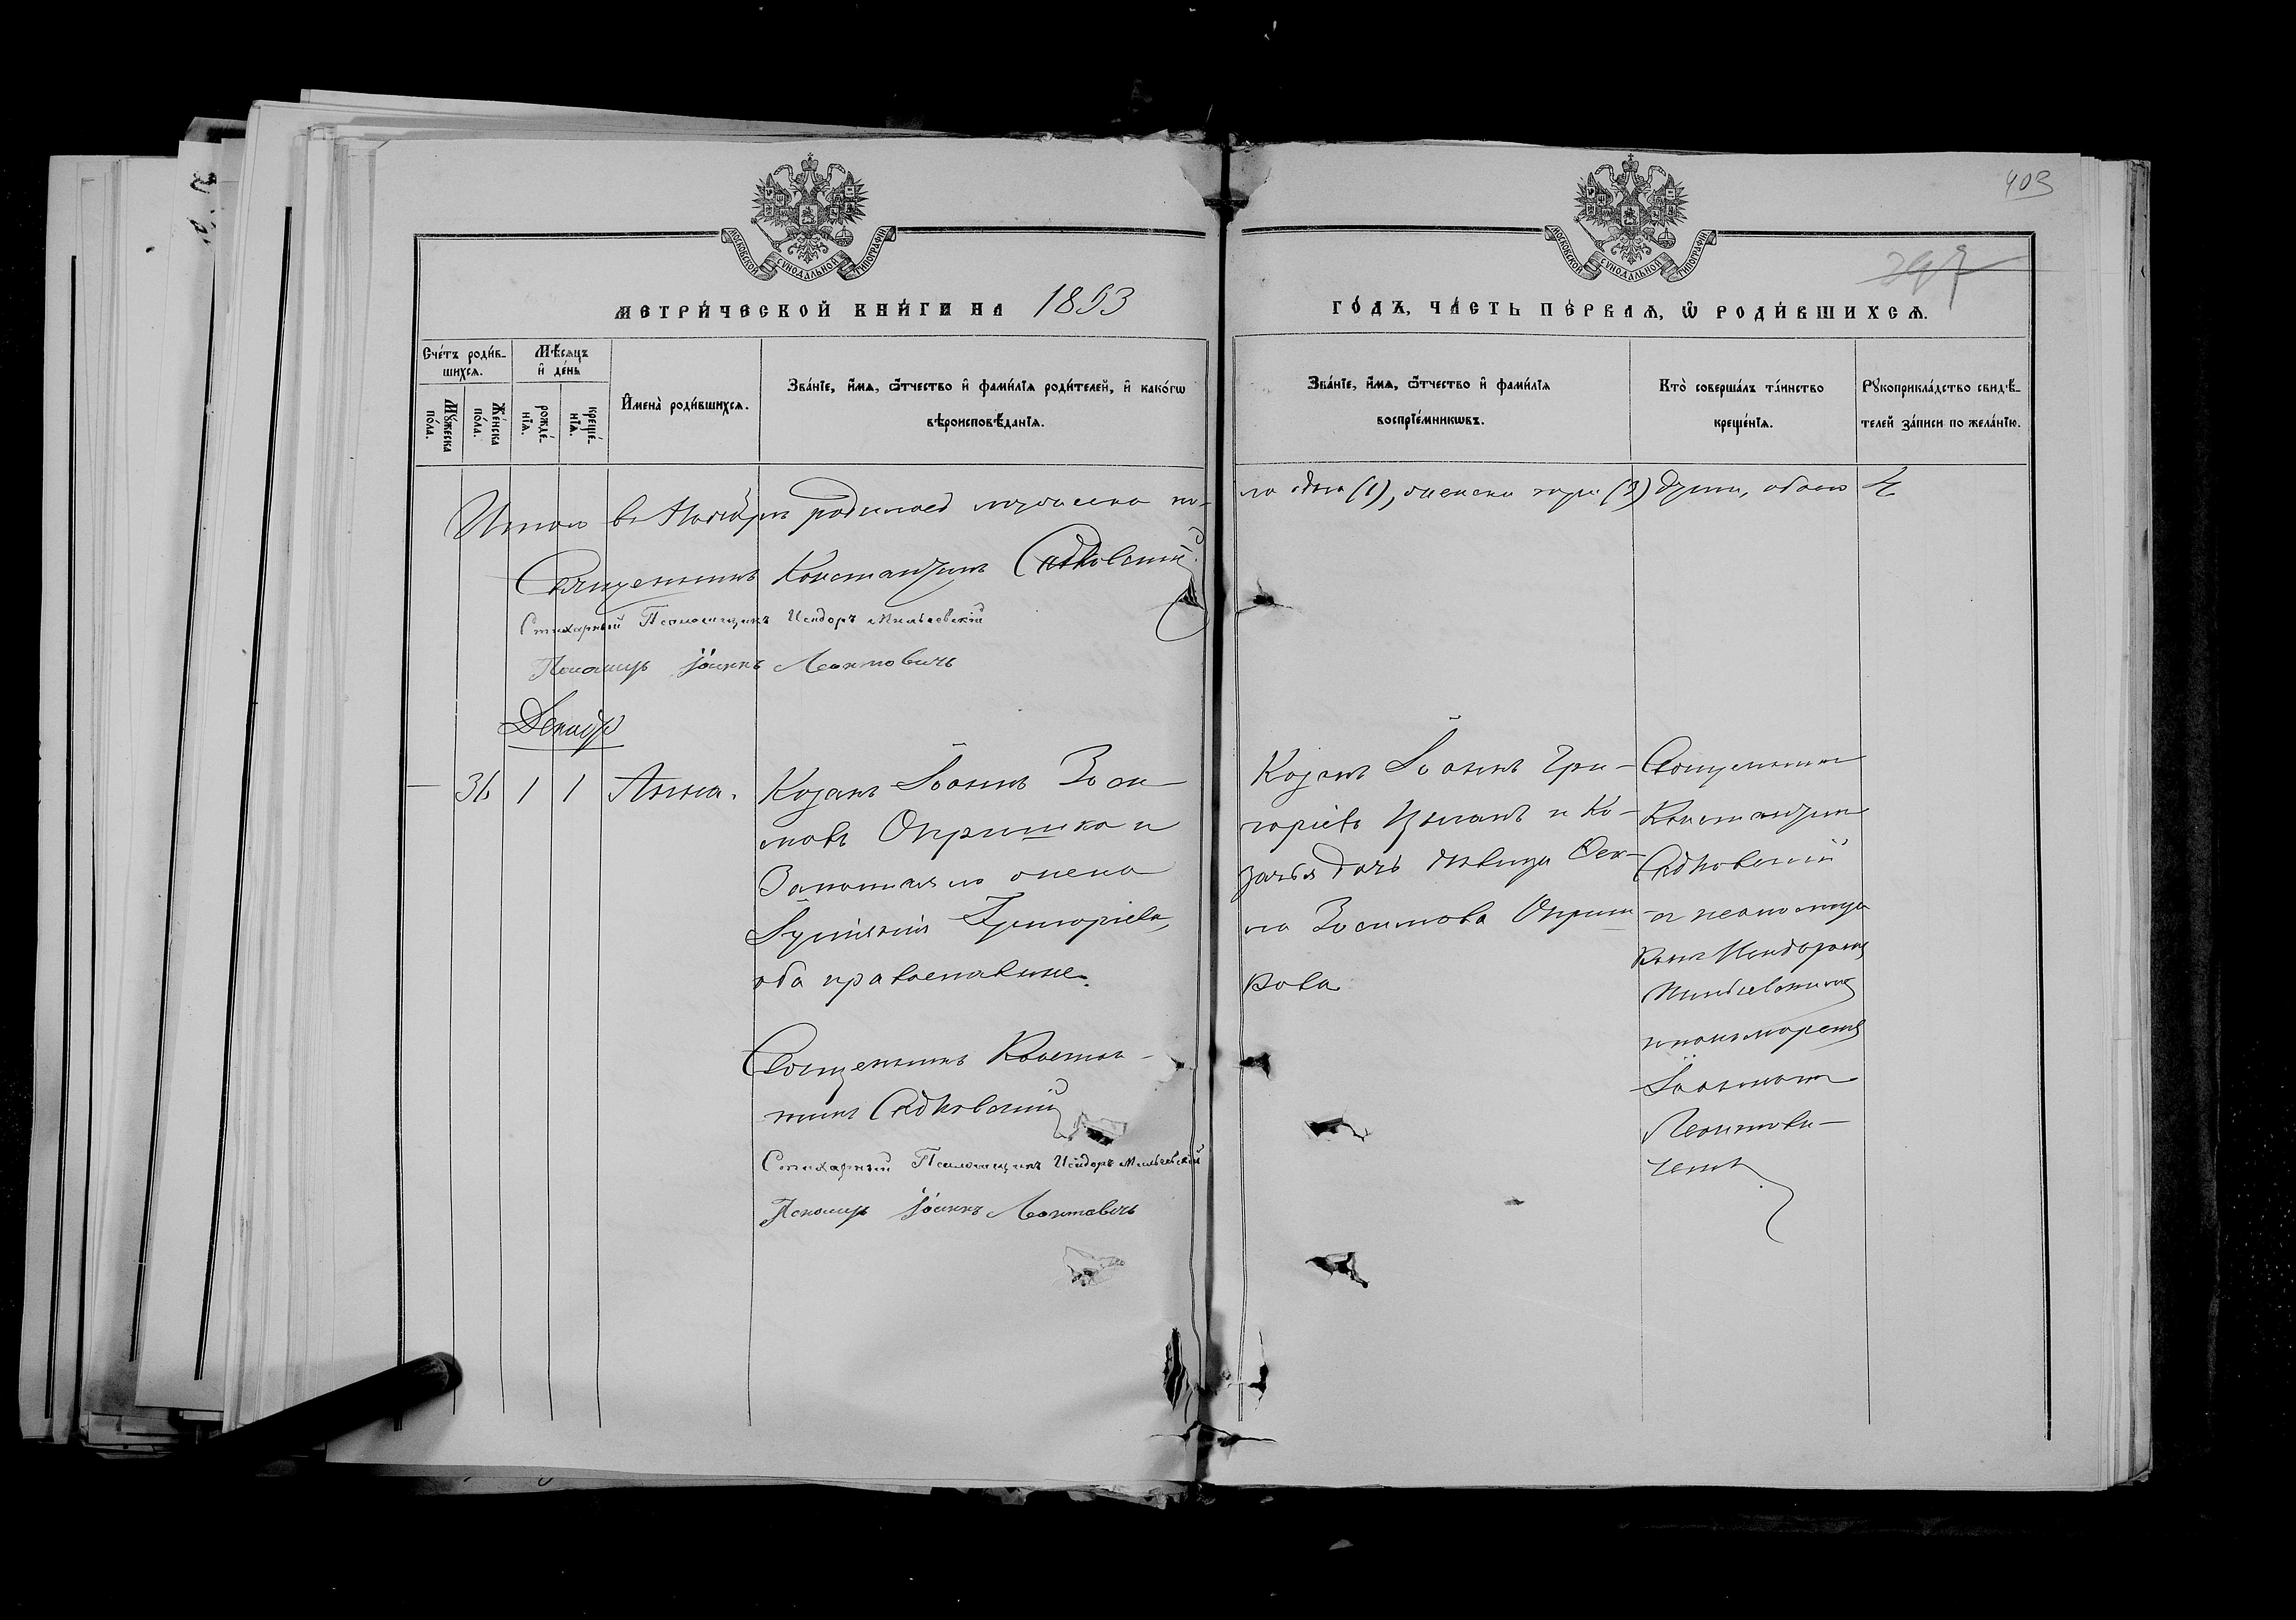 403
МОСКОВСКОЙ СѴНОДАЛЬНОЙ ТИПОГРАФІИ
МОСКОВСКОЙ СѴНОДАЛЬНОЙ ТИПОГРАФІИ
МЕТРИ́ЧЕСКОЙ КНИ́ГИ НА 1893
ГО́ДЪ, ЧА́СТЬ ПЕ́РВАѦ, Ѿ РОДИ́ВШИХСѦ.
Сче́тъ роди́в-
шихсѧ.
Мѣ́сѧцъ
и҆ де́нь
Мꙋ́жеска
по́ла.
Же́нска
по́ла.
рожде́-
нїѧ.
креще́-
нїѧ.
И҆мена̀ роди́вшихсѧ.
Зва́нїе, и҆́мѧ, ѻ҆́тчество и҆ фами́лїѧ роди́телей, и҆ како́гѡ
вѣроисповѣ́данїѧ.
Зва́нїе, и҆́мѧ, ѻ҆́тчество и҆ фами́лїѧ
воспрїе́мникѡвъ.
Кто̀ соверша́лъ та́инство
креще́нїѧ.
Рꙋкоприкла́дство свидѣ́-
телей за́писи по жела́нїю.
Итого въ Ноябрѣ родилось мужеска по-
ла одна (1), женска три (3) души, обоего 4
Священникъ Константинъ Садковскій
Стихарный Псаломщикъ Исидоръ Мильчевскій
Пономарь Іоаннъ Леонтовичъ
Декабрь
— 36 1 1 Анна.
Козакъ Іоаннъ Зоси-
мовъ Опришко и
законная его жена
Григоріева,
оба православные.
Козакъ Іоаннъ Гри-
горіевъ Цыганъ и Ко-
зачья дочь дѣвица Фек-
ла Зосимова Оприш-
кова
Священникъ
Константинъ
Садковскій
и псаломщи-
комъ Исидоромъ
Мильчевскимъ
и пономаремъ
Іоанномъ
Леонтови-
чемъ
Священникъ Констан-
тинъ Садковскій
Стихарный Псаломщикъ Исидоръ Мильчевскій
Пономарь Іоаннъ Леонтовичъ